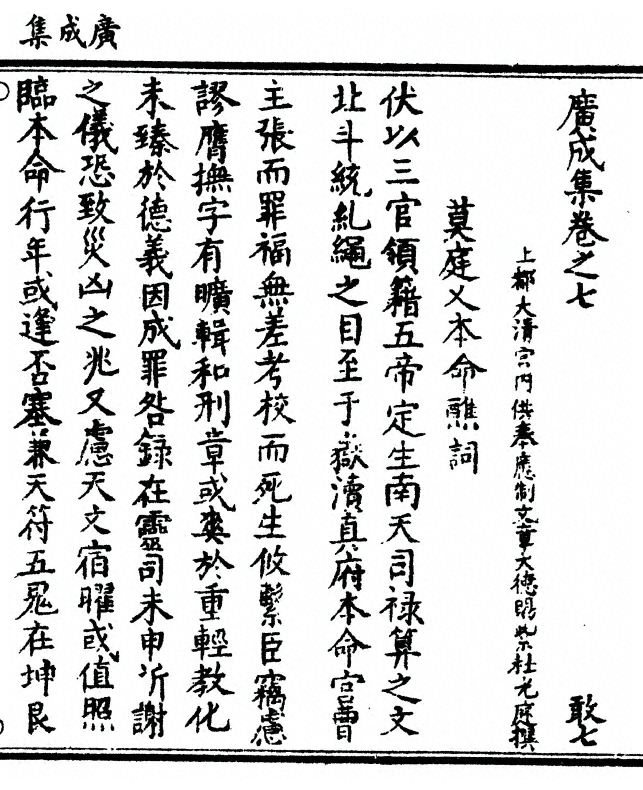 廣成集
廣成集卷之七　敢七
上都太清宫内供奉應制文章大德賜紫杜光庭撰
莫庭乂本命醮詞
伏以三官領籍五帝定生南天司禄算之文
北斗統糺繩之目至于嶽瀆真府本命宫曹
主張而罪福無差考校而死生攸繫臣竊慮
謬膺撫字有曠輯和刑章或爽於重輕教化
未臻於德義因成罪咎録在靈司未申祈謝
之儀恐致災凶之兆又慮天文宿曜或值照
臨本命行年或逢否塞兼天符五鬼在坤艮